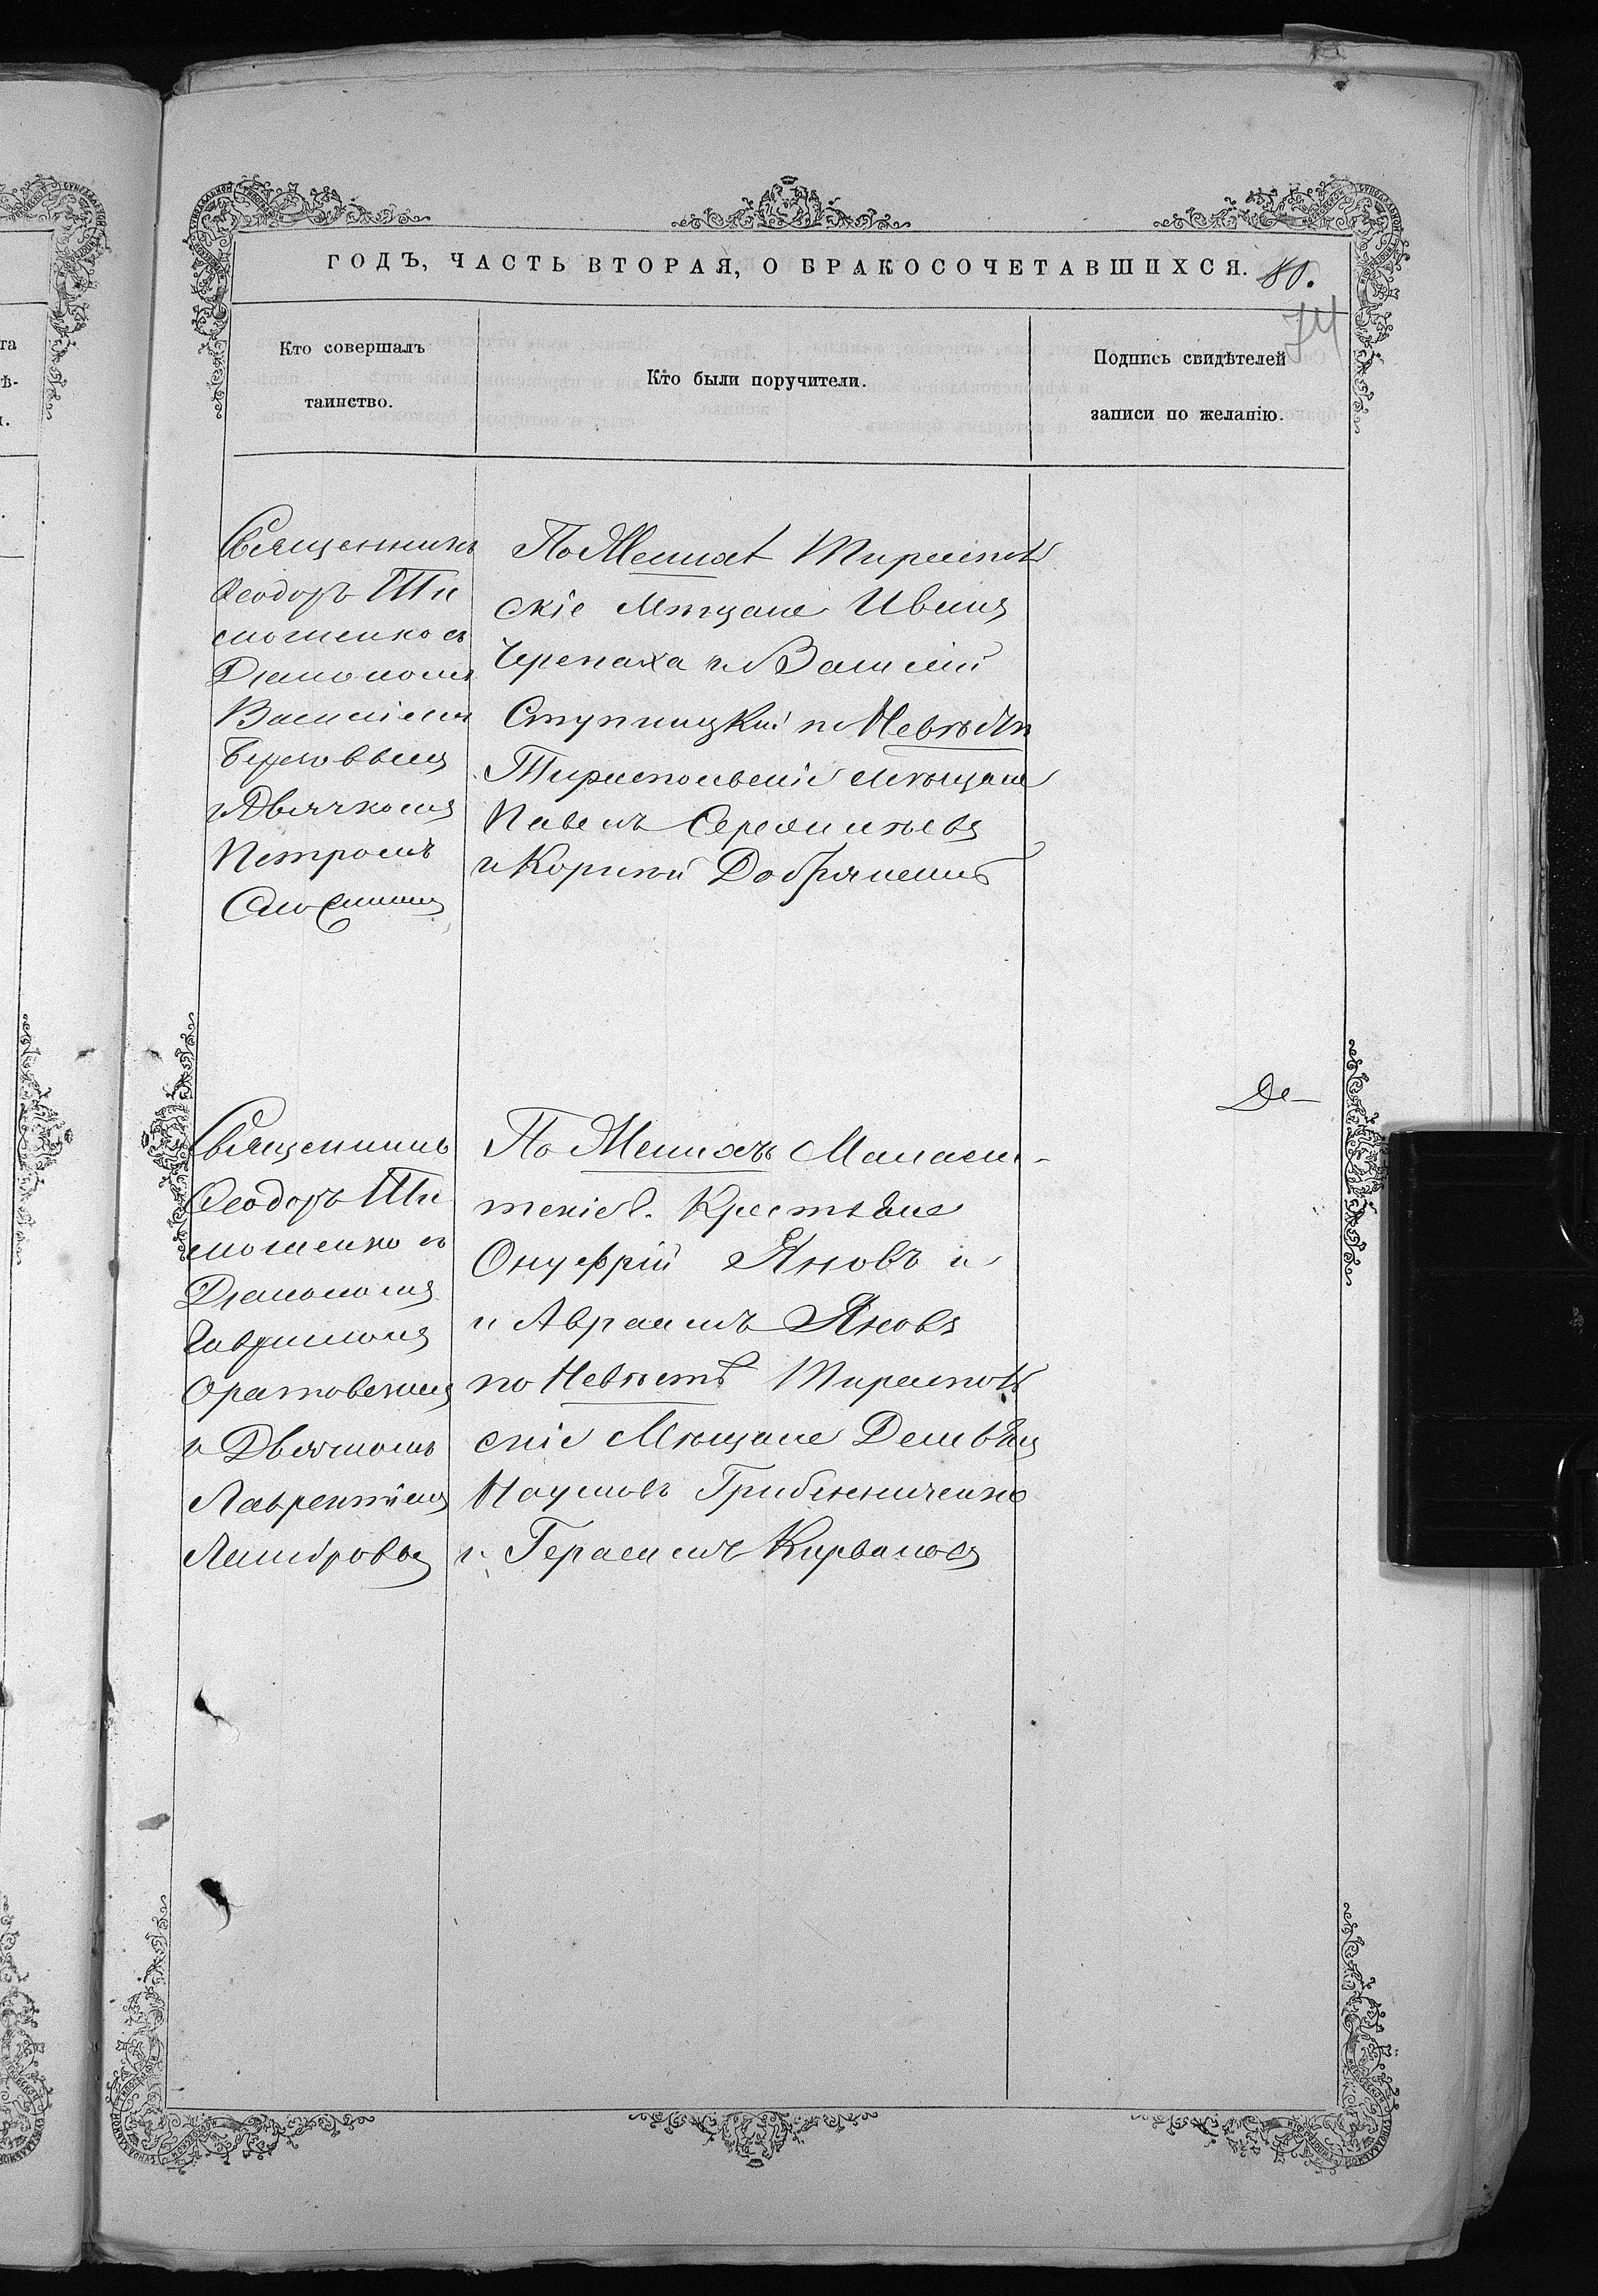 ГОДЪ, ЧАСТЬ ВТОРАЯ, О БРАКОСОЧЕТАВШИХСЯ. 80.
74
Кто совершалъ
таинство.
Кто были поручители.
Подпись свидѣтелей
записи по желанію.
Священникъ
Ѳеодоръ Ти
мошенко съ
Діакономъ
Василіемъ
и Дьячкомъ
Петромъ
По Женихѣ Тираспол
скіе Мѣщане Иванъ
Черепаха и Василій
Ступницкій по Невѣстѣ
Тираспольскіе мѣщане
Павелъ
и Корній
Де-
Священникъ
Ѳеодоръ Ти
мошенко съ
Діакономъ
Гавріиломъ
Оратовскимъ
и Дьячкомъ
Лаврентіемъ
По Женихѣ Малаеш-
тскіе Крестьяне
Онуфрій Яновъ и
и Авраамъ Яновъ
по Невѣстѣ Тираспол
скіе Мѣщане Демьянъ
Наумовъ Грибениченко
и Герасимъ Кирвановъ